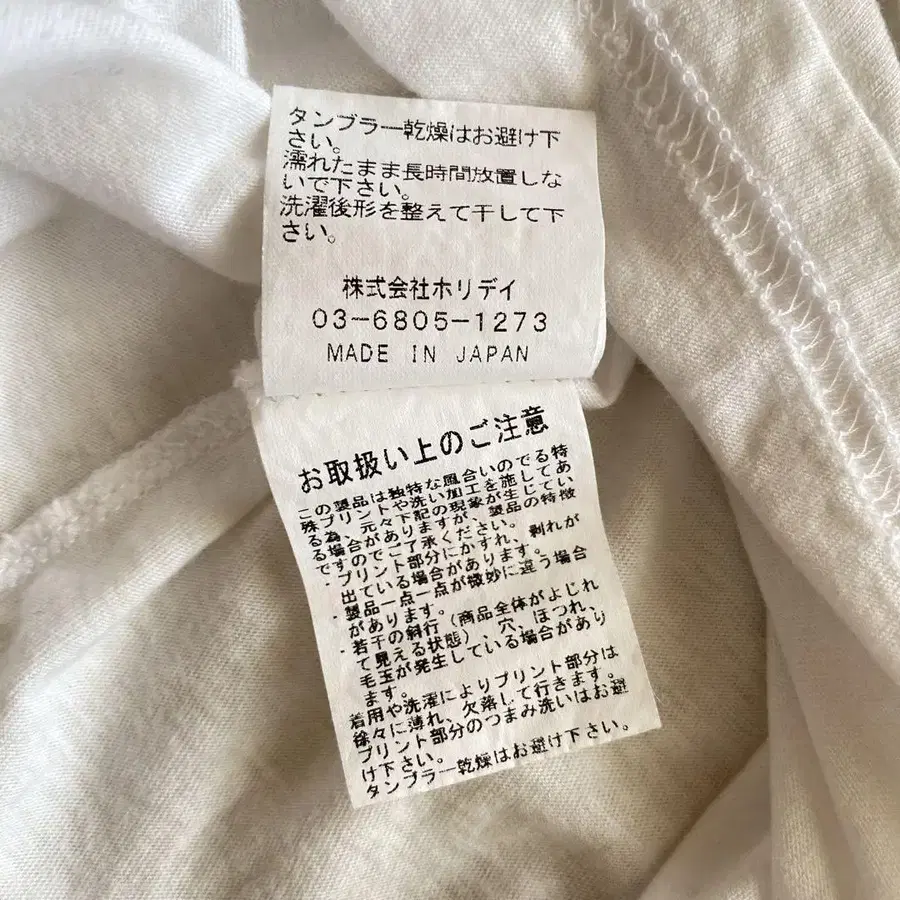 タンブラー乾燥はお避け下
さい。
濡れたまま長時間放置しな
いで下さい。
洗濯後形を整えて干して下
さい。
株式会社ホリデイ
03-6805-1273
MADE IN JAPAN
お取扱い上のご注意
この製品は独特な風合いのでる特
殊プリントや洗い加工を施してあ
る為、元々下記の現象が生じてい
る場合がありますが、製品の特徴
ですのでご了承ください。
・プリント部分にかすれ、剥れが
出ている場合があります。
・製品一点一点が微妙に違う場合
があります。
・若干の斜行(商品全体がよじれ
て見える状態)、穴、ほつれ、
毛玉が発生している場合があり
ます。
着用や洗濯によりプリント部分は
徐々に薄れ、欠落して行きます。
プリント部分のつまみ洗いはお避
け下さい。
タンブラー乾燥はお避け下さい。